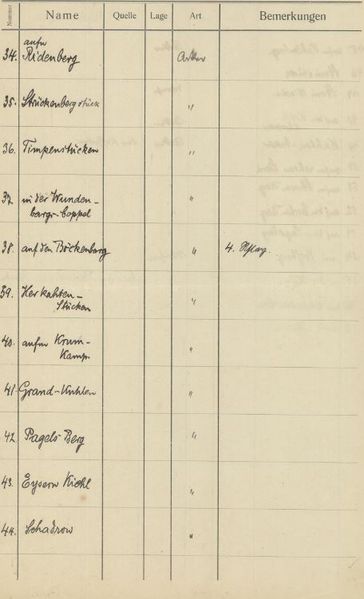 Nummer Name Quelle Lage Art Bemerkungen
aufm
34. Ridenberg Acker
35. Strückenbergstück "
36. Timpenstücken "
37. in der Wunden-
bergs-Coppel "
38. auf den Böckenberg " 4.
39. Herkahten-
Stücken "
40. aufm Krum-
Kamp "
41. Grand-Kuhlen "
42. Pagels-Berg "
43. Eysern Kiehl "
44. Schadrow "